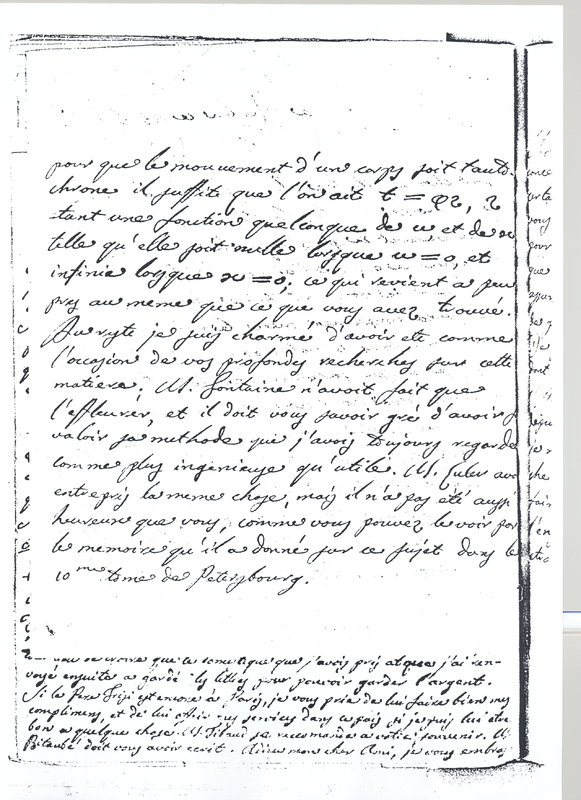 pour que le mouvement d'un corps soit tauto-
chrone il suffit que l'on ait t = φz, z
tant une fonction quelconque de u, et de x
telle qu'elle soit nulle lorsque u = 0, et
infinie lorsque x = 0; ce qui revient a peu
pres au meme que ce que vous avez trouvé.
Au reste je suis charmé d'avoir eté comme
l'occasion de vos profondes recherches sur cette
matiere. M. fontaine n'avoit fait que
l'effleurer, et il doit vous savoir gré d'avoir f
valoir sa methode que j'avois toujours regardé
comme plus ingenieuse qu'utile. M. Euler avo
entrepris la meme chose, mais il n'a pas eté aussi
heureux que vous, comme vous pouvez le voir par
le memoire qu'il a donné sur ce sujet dans le
10me tome de Petersbourg.
que j'avois pris et que j'ai ren-
voyé ensuite a gardé les lettres pour pouvoir garder l'argent.
Si le Pere Frisi est encore à Paris, je vous prie de lui faire bien mes
complimens, et de lui offrir mes services dans ce pais, si je puis lui etre
bon a quelque chose. M. se recommande a votre souvenir. M.
Bitaubé doit vous avoir ecrit. Adieu mon cher Ami, je vous embras